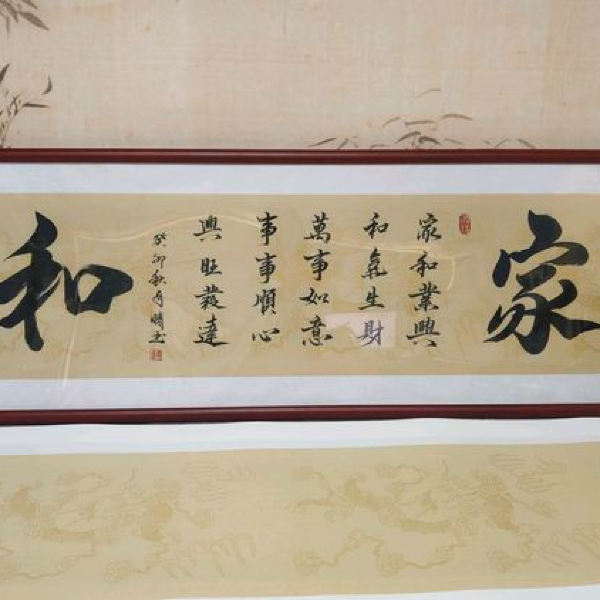 家
家和業興
和氣生財
萬事如意
事事順心
興旺發達
癸卯秋月
和